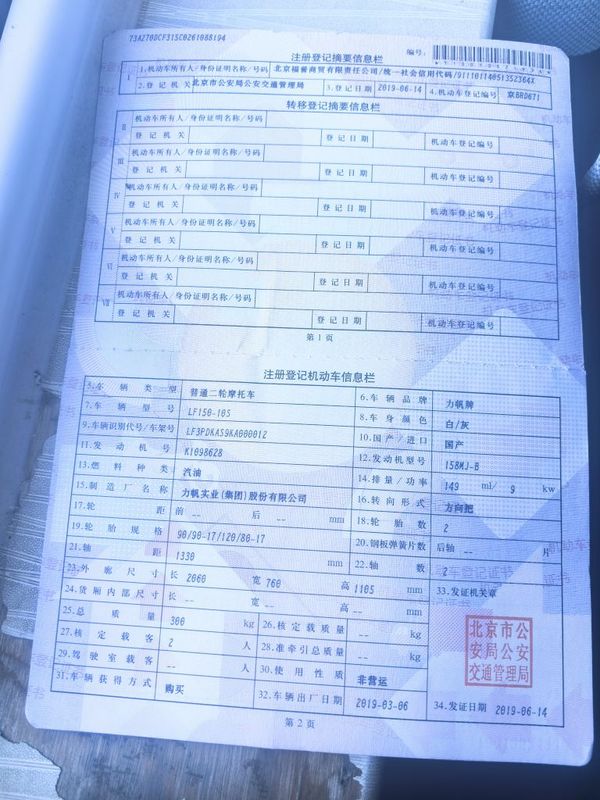 73A270DCF315C0261088194
注册登记摘要信息栏
编号:
I 1.机动车所有人/身份证明名称/号码 北京福誉商贸有限责任公司/统一社会信用代码/91110114051352364X
2.登记机关 北京市公安局公安交通管理局 3.登记日期 2019-06-14 4.机动车登记编号 京BRD671
转移登记摘要信息栏
II 机动车所有人/身份证明名称/号码
登记机关 登记日期 机动车登记编号
III 机动车所有人/身份证明名称/号码
登记机关 登记日期 机动车登记编号
IV 机动车所有人/身份证明名称/号码
登记机关 登记日期 机动车登记编号
V 机动车所有人/身份证明名称/号码
登记机关 登记日期 机动车登记编号
VI 机动车所有人/身份证明名称/号码
登记机关 登记日期 机动车登记编号
VII 机动车所有人/身份证明名称/号码
登记机关 登记日期 机动车登记编号
第1页
注册登记机动车信息栏
5.车辆类型 普通二轮摩托车 6.车辆品牌 力帆牌
7.车辆型号 LF150-10S 8.车身颜色 白/灰
9.车辆识别代号/车架号 LF3PDKA59KA000012 10.国产/进口 国产
11.发动机号 K1098628 12.发动机型号 158MJ-B
13.燃料种类 汽油 14.排量/功率 149 ml/ 9 kw
15.制造厂名称 力帆实业(集团)股份有限公司 16.转向形式 方向把
17.轮距 前 -- 后 -- mm 18.轮胎数 2
19.轮胎规格 90/90-17/120/80-17 20.钢板弹簧片数 后轴 -- 片
21.轴距 1330 mm 22.轴数 2
23.外廓尺寸 长 2060 宽 760 高 1105 mm 33.发证机关章
24.货厢内部尺寸 长 -- 宽 -- 高 -- mm
25.总质量 300 kg 26.核定载质量 -- kg
27.核定载客 2 人 28.准牵引总质量 -- kg
29.驾驶室载客 -- 人 30.使用性质 非营运
31.车辆获得方式 购买 32.车辆出厂日期 2019-03-06 34.发证日期 2019-06-14
北京市公
安局公安
交通管理局
第2页